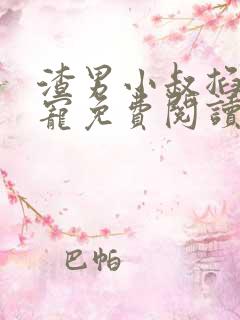 渣男小叔掐
寵免費閱讀
巴帕